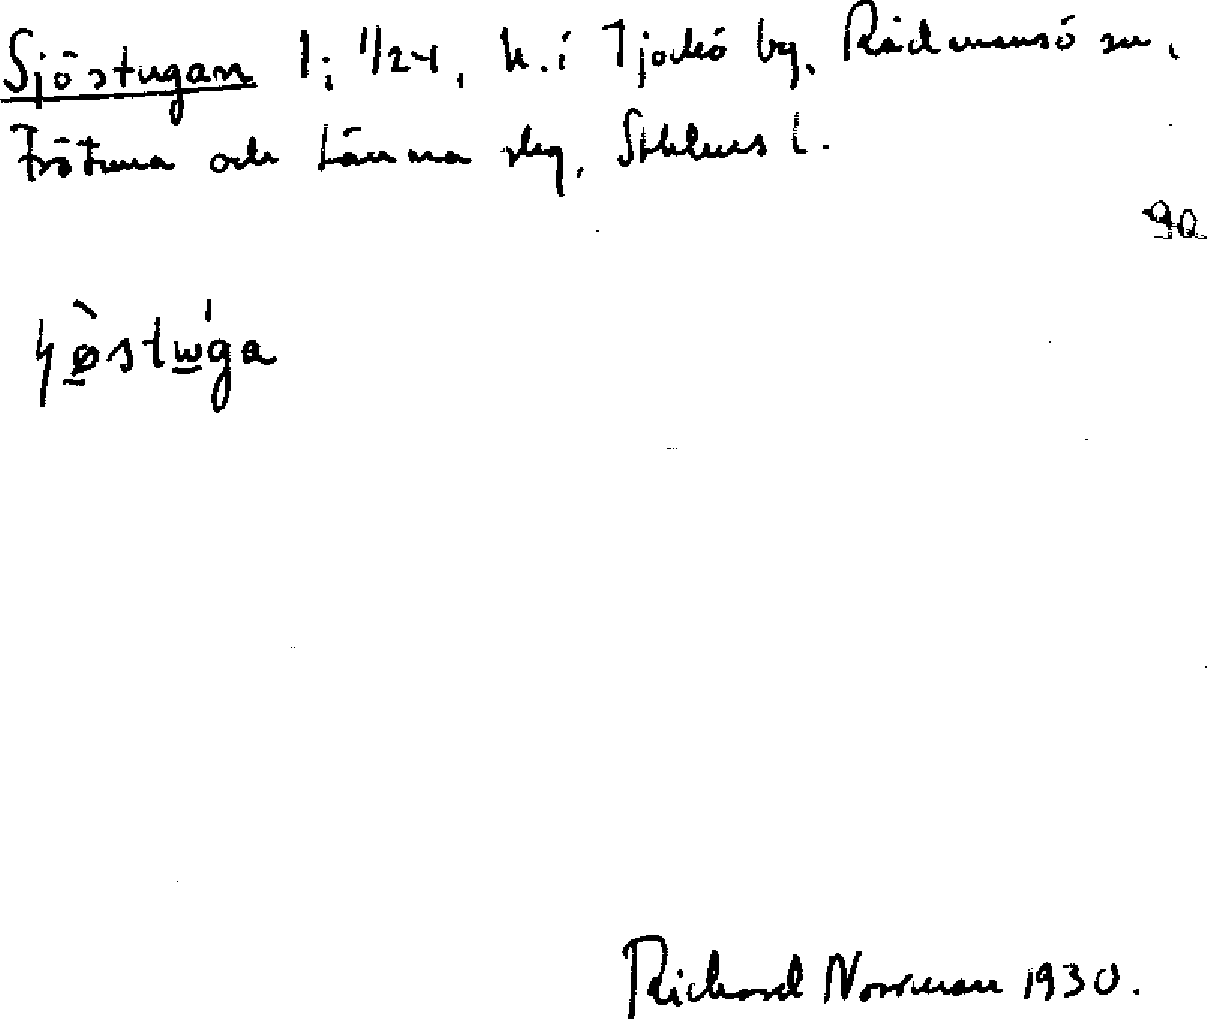 Sjöstugan 1; 1/24, h. i Tjockö by, Rådmansö sn,
Frötuna och Länna slg, Sthlms l.
ɧø̀stẃga
Richard Norrman 1930.